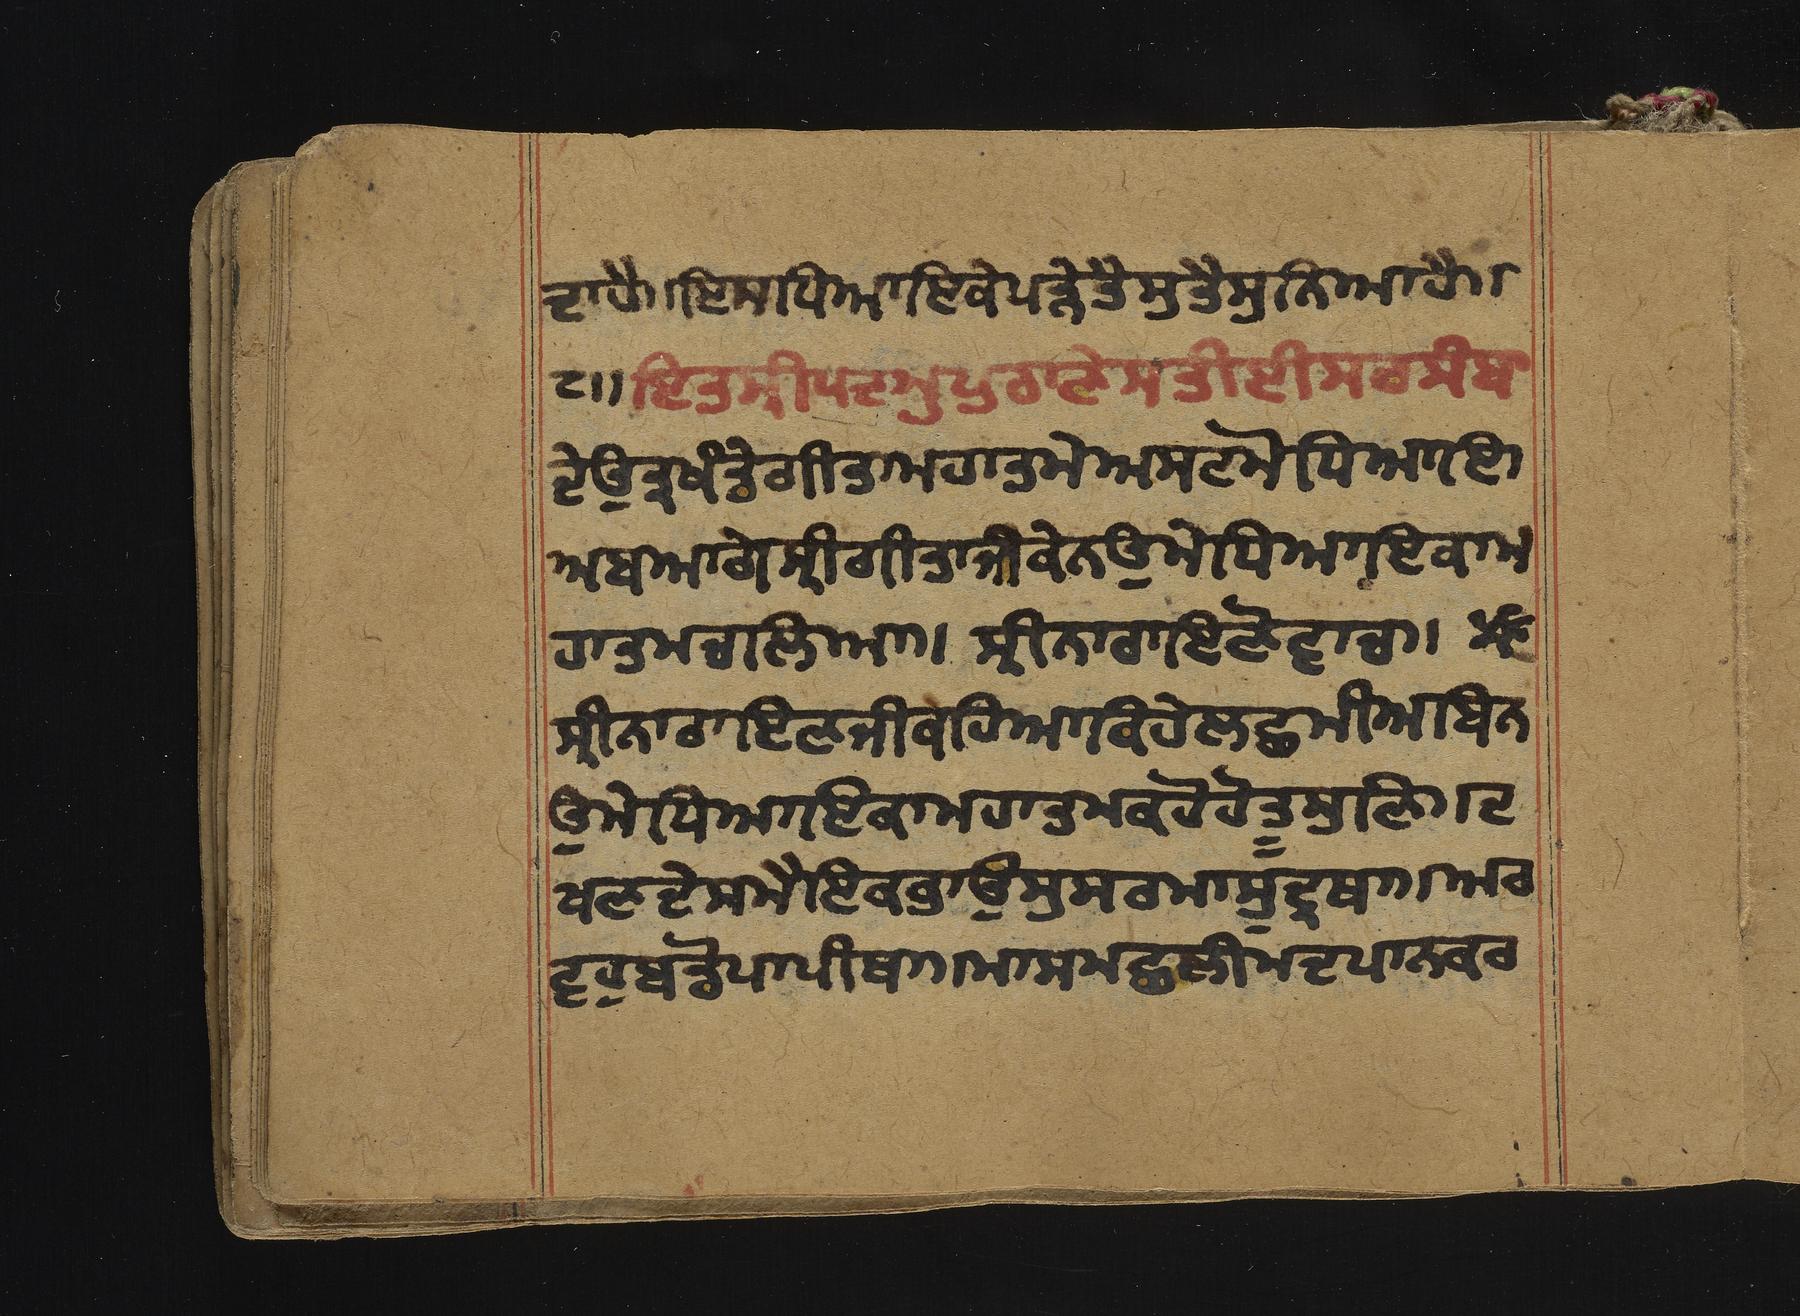 ਦਾਹੈ॥ਇਸਧਿਆਇਕੇਪੜ੍ਹੇਤੈਸੁਤੈਸੁਨਿਆਹੈ॥
੮॥ਇਤਸ੍ਰੀਪਦਮੁਪੁਰਾਣੇਸਤੀਈਸਰਸੰਬਾ
ਦੇਉਤ੍ਰਖੰਡੇਗੀਤਾਮਹਾਤਮੇਅਸਟਮੋਧਿਆਇ।
ਅਬਆਗੇਸ੍ਰੀਗੀਤਾਜੀਕੇਨਉਮੇਧਿਆਇਕਾਮ
ਹਾਤਮਚਾਲਿਆ॥ ਸ੍ਰੀਨਾਰਾਇਣੋਵਾਚ॥
ਸ੍ਰੀਨਾਰਾਇਣਜੀਕਹਿਆਕਿਹੇਲਛਮੀਅਬਿਨ
ਉਮੇਧਿਆਇਕਾਮਹਾਤਮਕਹੋਹੋਤੂਸੁਣਿ॥ਦ
ਖਣਦੇਸਮੈਇਕਭਾਉਸੁਸਰਮਾਸੁਦ੍ਰਥਾ॥ਅਰ
ਵਹੁਬਡੋਪਾਪੀਥਾ॥ਮਾਸਮਛਲੀਮਦਪਾਨਕਰ